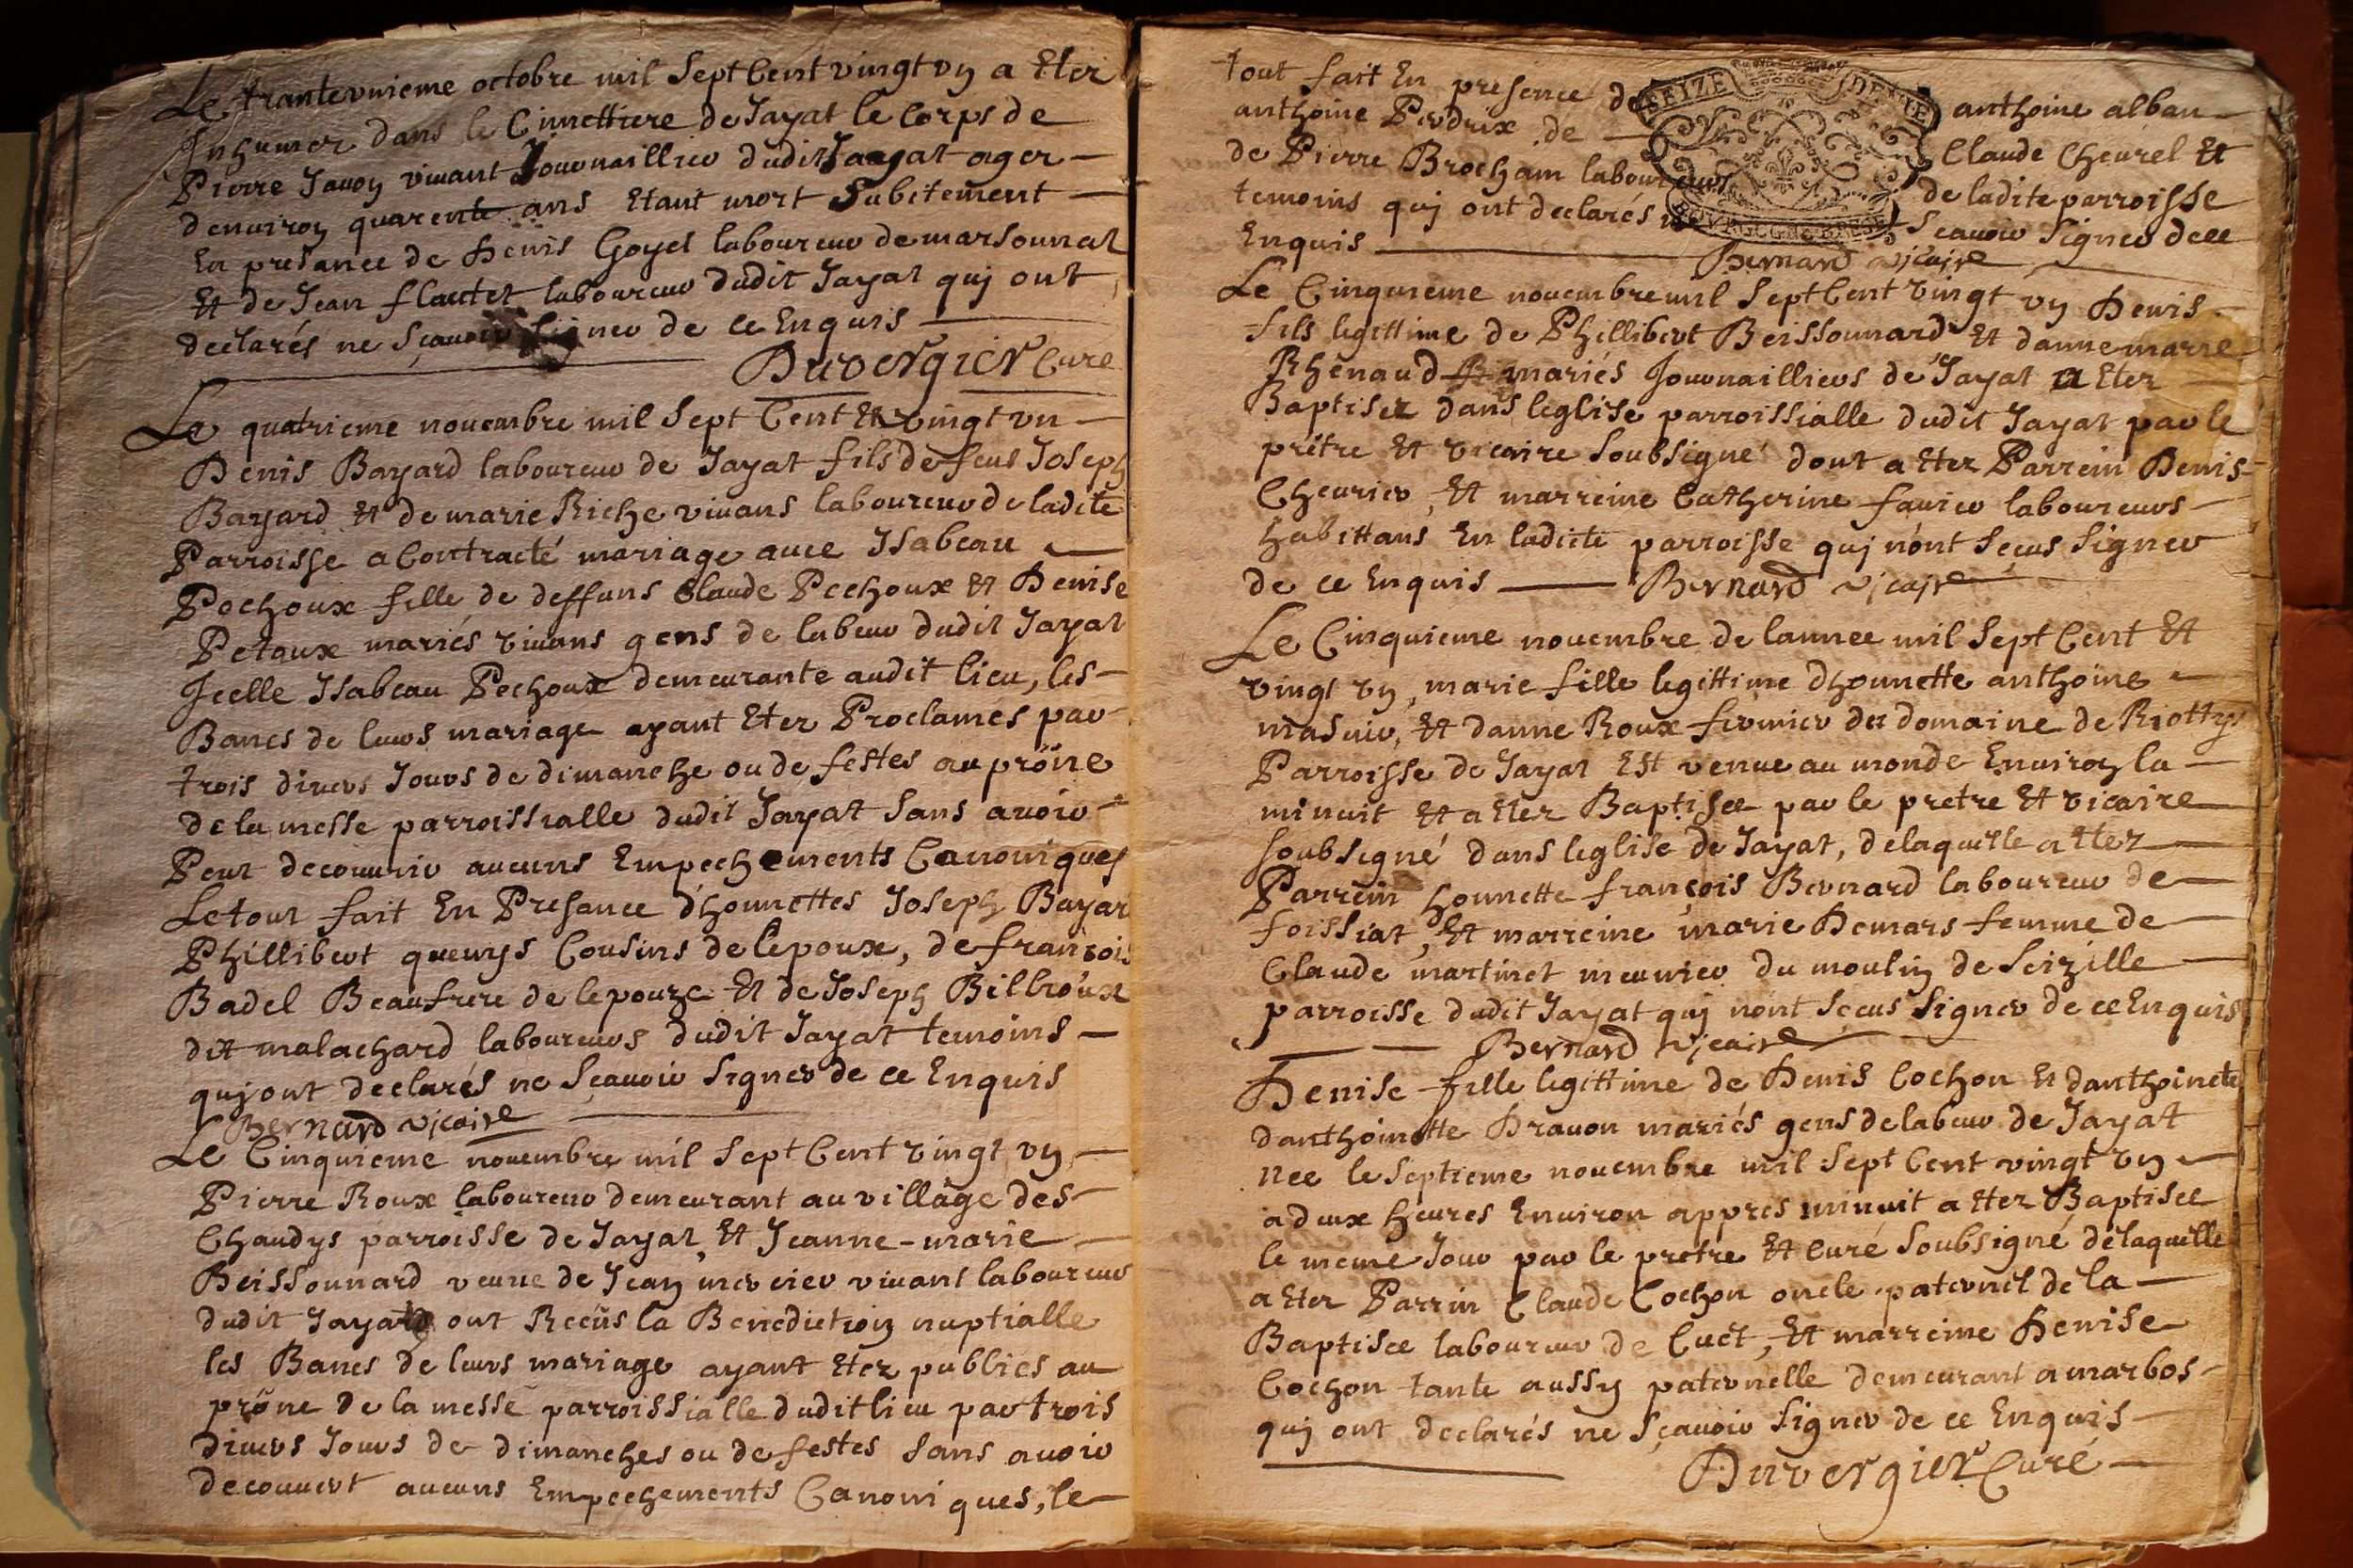 Le trantevnieme octobre mil Sept Cent vingt vn a Eter
Inhumer dans le Cimettiere de Jayat le Corps de
Pierre Jauon viuant Journaillier dudit Jayat ager
denuiron quarente ans Etant mort Subitement
En presance de Denis Goyet laboureur de marsonnat
Et de Jean flautet laboureur dudit Jayat quj ont
declarés ne Sçauoir Signer de ce Enquis
Duvergier Cure
Le quatrieme nouembre mil Sept Cent Et vingt vn
Denis Bayard laboureur de Jayat fils de feus Joseph
Bayard Et de marie Riche viuans laboureur de ladite
Parroisse a Contracté mariage auec Isabeau
Pochoux fille de deffuns Claude Pechoux Et Denise
Petaux mariés viuans gens de labeur dudit Jayat
Jcelle Isabeau Pechoux demeurante audit lieu, les
Bancs de leurs mariage ayant Eter Proclames par
trois diuers Jours de dimanche ou de festes au prône
de la messe parroissialle dudit Jayat Sans auoir
Peut decouurir aucuns Empechements Canoniques
Le tout fait En Presance d'honnettes Joseph Bayar
Phillibert queurys Cousins de l'epoux, de françois
Badel Beaufrere de lepouze Et de Joseph Billioux
dit malachard laboureurs dudit Jayat temoins
quj ont declarés ne Sçauoir Signer de ce Enquis
Bernard vjcaire
Le Cinquieme nouembre mil Sept Cent vingt vn
Pierre Roux laboureur demeurant au village des
Chaudys parroisse de Jayat, Et Jeanne-marie
Beissonnard veuue de Jean mercier viuant laboureur
dudit Jayat ont Reçus la Benediction nuptialle
les Bancs de leurs mariage ayant Eter publies au
prône de la messe parroissialle dudit lieu par trois
diuers Jours de dimanches ou de festes Sans auoir
decouuert aucuns Empechements Canoniques, le
tout fait En presence de anthoine alban
anthoine Perdrix de Claude Cheurel Et
de Pierre Brocham laboureurs de ladite parroisse
temoins quj ont declarés ne Sçauoir Signer dece
Enquis
SEIZE DENIE
BOVRGOGNE BRESSE
Bernard vjcaire
Le Cinquieme nouembre mil Sept Cent vingt vn Denis
fils legittime de Phillibert Beissonnard Et danne marie
Rhenaud mariés Journailliers de Jayat a Eter
Baptiser dans leglise parroissialle dudit Jayat par le
prêtre Et vicaire Soubsigné dont a Eter Parrein Denis
Cheurier, Et marreine Catherine fauier laboureurs
habittans En ladicte parroisse quj n'ont Sçeus Signer
de ce Enquis Bernard vjcaire
Le Cinquieme nouembre de lannee mil Sept Cent Et
vingt vn, marie fille legittime dhonnette anthoine
masuir, Et danne Roux fermier du domaine de Riottys
Parroisse de Jayat Est venue au monde Enuiron la
minuit Et a Eter Baptisee par le pretre Et vicaire
soubsigné dans leglise de Jayat, delaquelle a Eter
Parrein honnette françois Bernard laboureur de
foissiat, Et marreine marie Demars femme de
Claude martinet meunier du moulin de Seizille
parroisse dudit Jayat quj n'ont Sçeus Signer de ce Enquis
Bernard vjcaire
Denise fille legittime de Denis Cochon Et danthoinete
danthoinette Drauon mariés gens de labeur de Jayat
nee le Septieme nouembre mil Sept Cent vingt vn
a deux heures Enuiron appres minuit a Eter Baptisee
le meme Jour par le pretre Et Curé Soubsigné delaquelle
a Eter Parrin Claude Cochon oncle paternel de la
Baptisee laboureur de Cuet, Et marreine Denise
Cochon tante aussy paternelle demeurant a marbos
quj ont declarés ne Sçauoir Signer de ce Enquis
Duvergier Curé